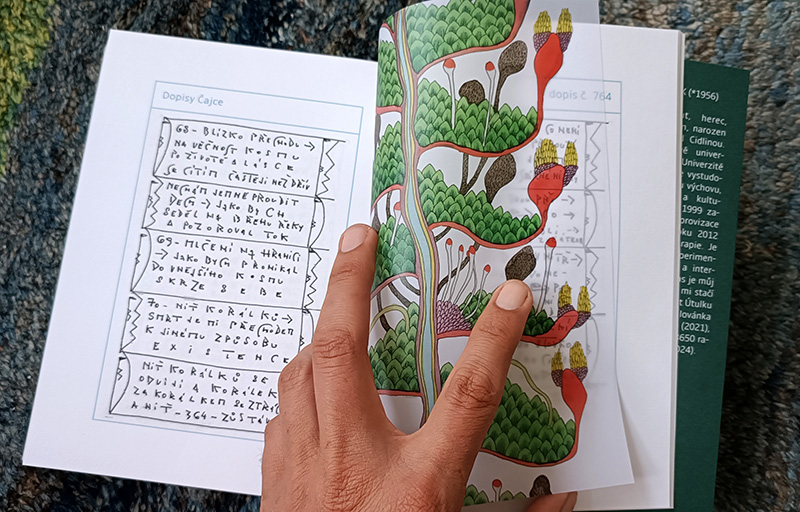 Dopisy Čajce
68 - BLÍZKO PŘECHODU →
NA VĚČNOST KOSMU
PO ŽIVOTĚ A LÁSCE
SE CÍTÍM ČASTĚJI NEŽ DŘÍV
NECHÁM JEMNĚ PROUDIT
DECH → JAKO BYCH
SEDĚL NA BŘEHU ŘEKY
A POZOROVAL TOK
69 - MLČENÍ NA
→ JAKO BYCH PRONIKAL
DO VNĚJŠÍHO KOSMU
SKRZE SEBE
70 - NIT KORÁLKŮ →
SMRT JE MI PŘECHODEM
K JINÉMU ZPŮSOBU
EXISTENCE
NIT KORÁLKŮ SE
ODVÍJÍ A KORÁLEK
ZA KORÁLKEM SE ZTRÁ
A NIT - 364 - ZŮSTÁ
dopis č. 764
(*1956)
herec,
narozen
Cidlinou.
univer-
Univerzitě
vystudo-
výchovu,
a kultu-
1999 za-
provizace
roku 2012
rapie. Je
xperimen-
a inter-
s je můj
mi stačí
t Útulku
lovánka
(2021),
650 ra-
24).